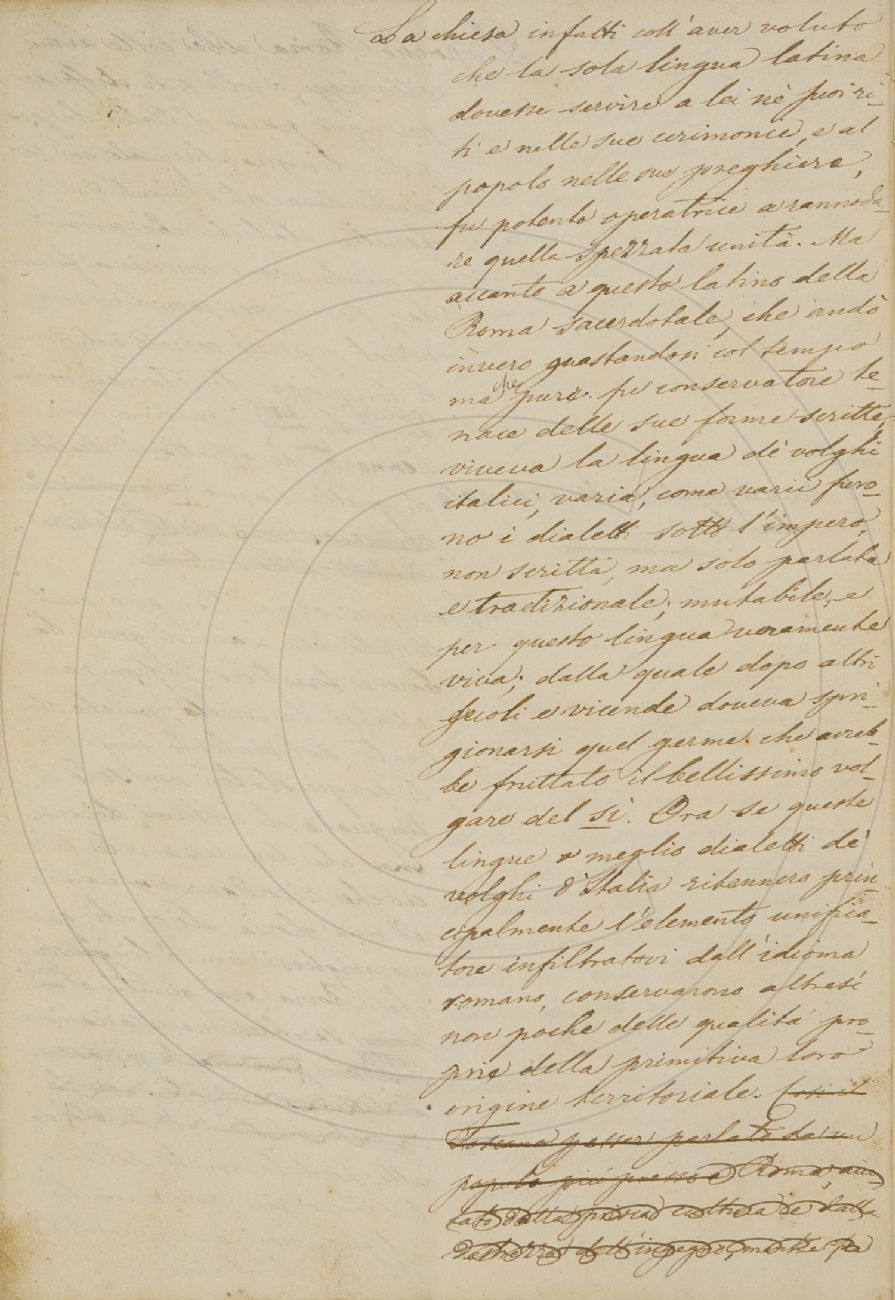 La chiesa infatti coll'aver voluto
che la sola lingua latina
dovesse servire a lei nè suoi ri-
ti e nelle sue cerimonie, e al
popolo nelle sue preghiere,
fu potente operatrice a rannoda-
re quella spezzata unità. Ma
accanto a questo latino della
Roma sacerdotale, che andò
invero guastandosi col tempo
ma che pure fu conservatore te-
nace delle sue forme scritte,
viveva la lingua dè volghi
italici, varia, come varii furo-
no i dialetti sotto l'impero,
non scritta, ma solo parlata
e tradizionale; mutabile, e
per questo lingua veramente
viva; dalla quale dopo altri
secoli e vicende doveva spri-
gionarsi quel germe che avreb-
be fruttato il bellissimo vol-
gare del sì. Ora se queste
lingue o meglio dialetti dè
volghi d'Italia ritennero prin-
cipalmente l'elemento unifica-
tore infiltratovi dall'idioma
romano, conservarono altresì
non poche delle qualità pro-
prie della primitiva loro
origine territoriale. Così il
Toscano p esser parlato da un
popolo più presso a Roma, aiu-
tato dalla prisca cultura e dalla
destrezza dell'ingegno, mentre